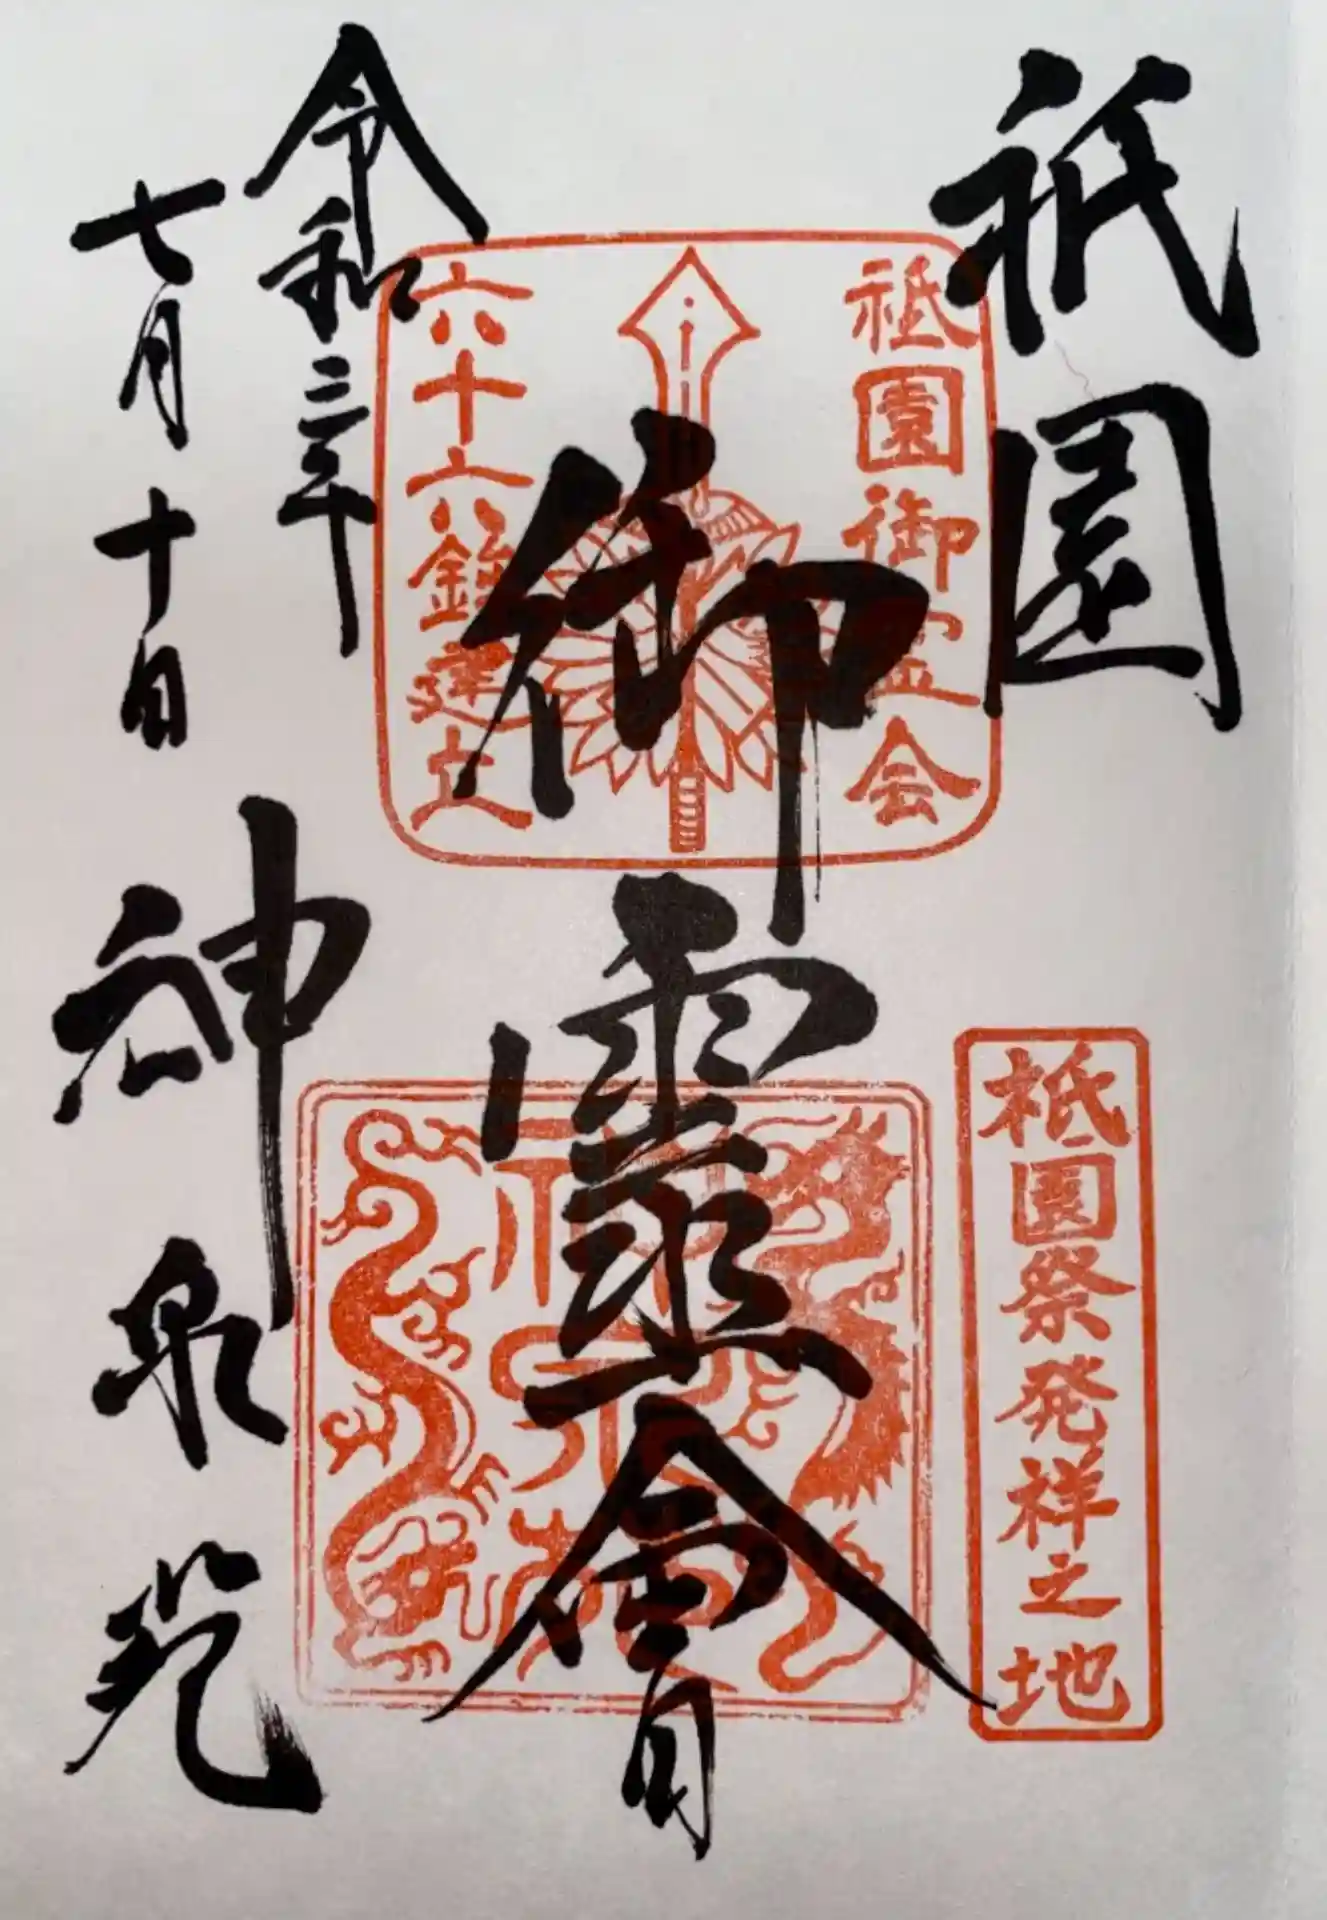 祇園
祇園御霊会
祇園祭発祥之地
御靈會
六十六鉾建立
神泉苑
令和三年
七月十日
神泉苑